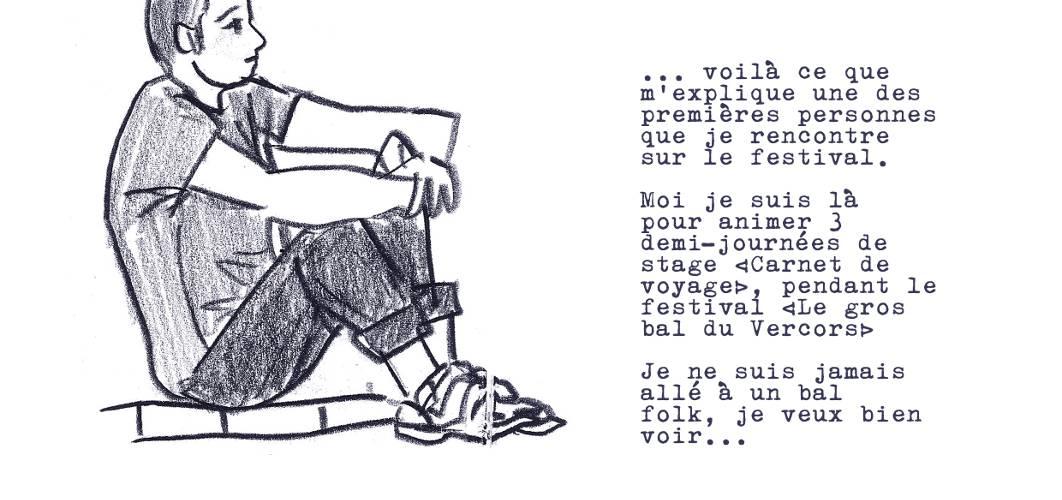 ... voilà ce que
m'explique une des
premières personnes
que je rencontre
sur le festival.
Moi je suis là
pour animer 3
demi-journées de
stage ⊲Carnet de
voyage⊳, pendant le
festival ⊲Le gros
bal du Vercors⊳
Je ne suis jamais
allé à un bal
folk, je veux bien
voir...